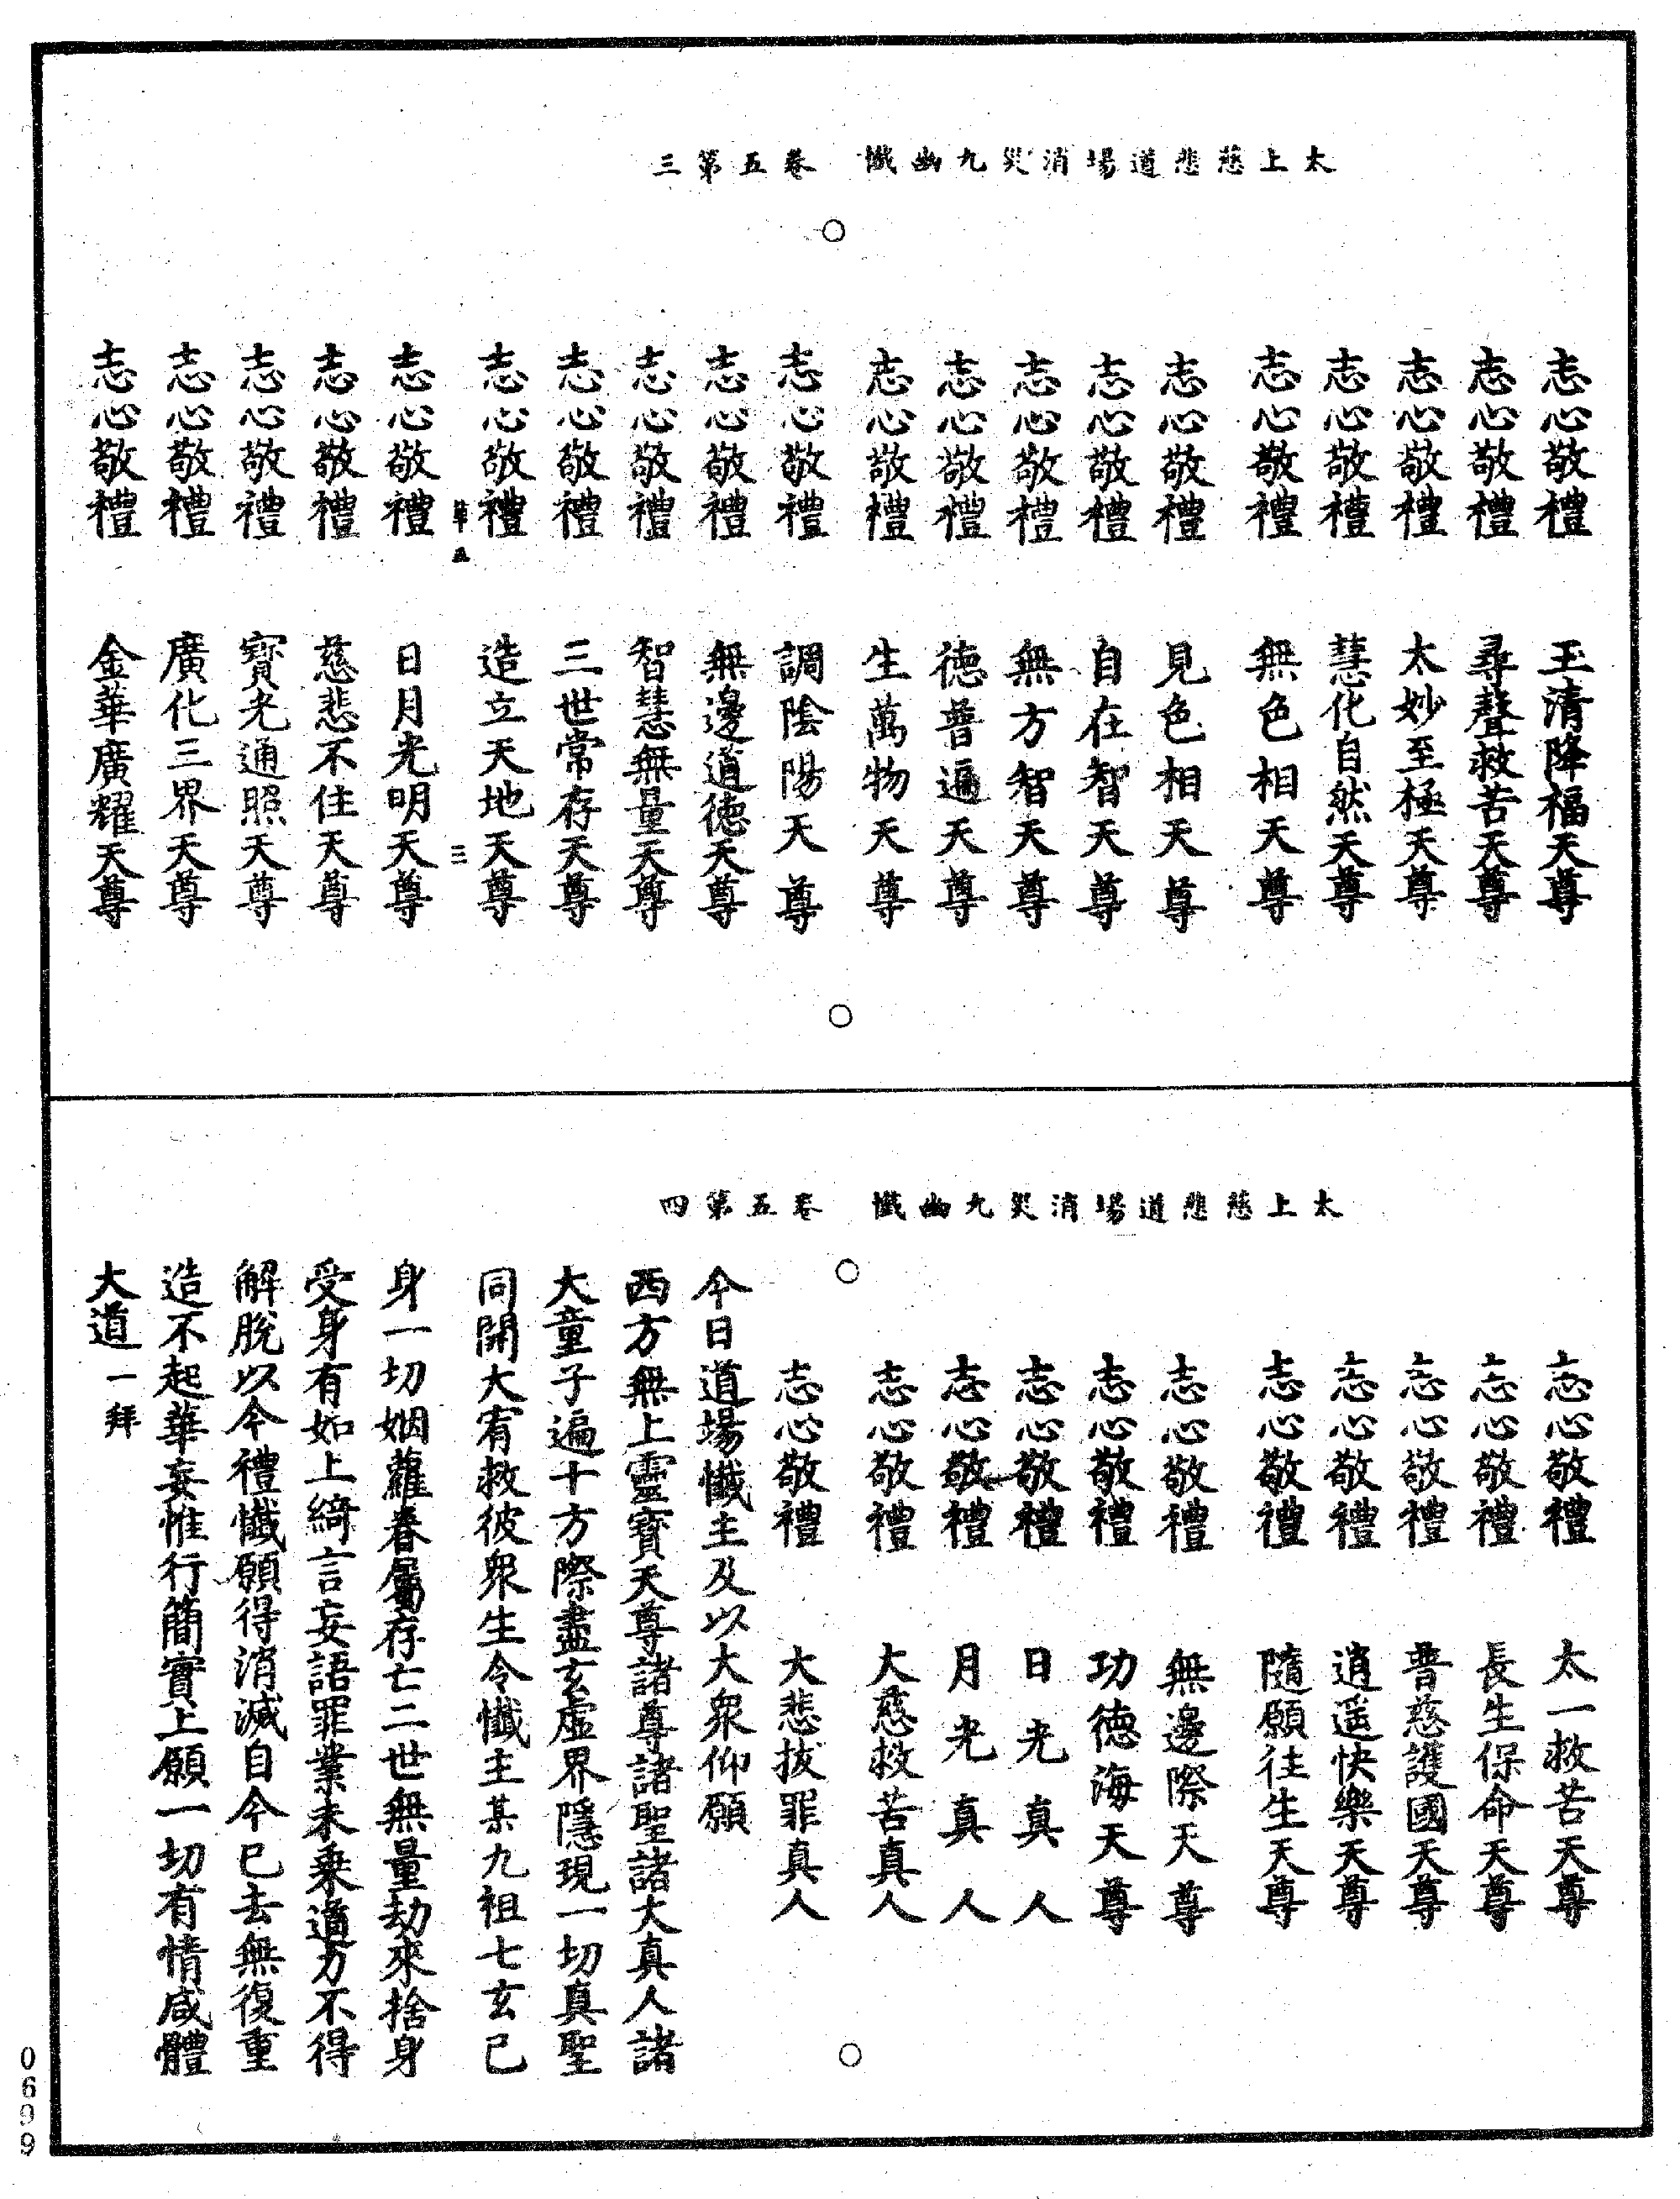 太上慈悲道場消災九幽懺　卷五第三
志心敬禮　玉清降福天尊
志心敬禮　尋聲救苦天尊
志心敬禮　太妙至極天尊
志心敬禮　慧化自然天尊
志心敬禮　無色相天尊
志心敬禮　見色相天尊
志心敬禮　自在智天尊
志心敬禮　無方智天尊
志心敬禮　德普遍天尊
志心敬禮　生萬物天尊
志心敬禮　調陰陽天尊
志心敬禮　無邊道德天尊
志心敬禮　智慧無量天尊
志心敬禮　三世常存天尊
志心敬禮　造立天地天尊
三
志心敬禮　日月光明天尊
志心敬禮　慈悲不住天尊
志心敬禮　寶光通照天尊
志心敬禮　廣化三界天尊
志心敬禮　金華廣耀天尊
太上慈悲道場消災九幽懺　卷五第四
志心敬禮　太一救苦天尊
志心敬禮　長生保命天尊
志心敬禮　普慈護國天尊
志心敬禮　逍遥快樂天尊
志心敬禮　隨願往生天尊
志心敬禮　無邊際天尊
志心敬禮　功德海天尊
志心敬禮　日光真人
志心敬禮　月光真人
志心敬禮　大慈救苦真人
志心敬禮　大悲拔罪真人
今日道場懺主及以大衆仰願
西方無上靈寶天尊諸尊諸聖諸大真人諸
大童子遍十方際盡玄虛界隱現一切真聖
同開大宥救彼衆生令懺主某九祖七玄已
身一切姻蘿眷屬存亡二世無量劫來捨身
受身有如上綺言妄語罪業未乘道力不得
解脫以今禮懺願得消滅自今已去無復重
造不起華妄惟行簡實上願一切有情咸體
大道一拜
0699